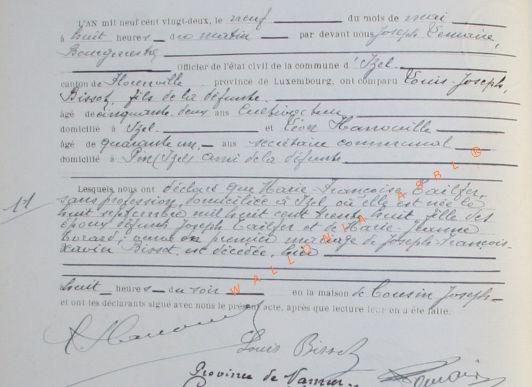 L'AN mil neuf cent vingt-deux, le neuf du mois de mai
à huit heures du matin par devant nous Joseph Lemaire,
Bourgmestre
Officier de l'état civil de la commune d'Izel
canton de Florenville province de Luxembourg, ont comparu Louis-Joseph,
Bissot, fils de la défunte
âgé de cinquante deux ans cultivateur
domicilié à Izel et Léon Hanouille
âgé de quarante un ans secrétaire communal
domicilié à Pin (Izel) ami de la défunte
Lesquels nous ont déclaré que Marie Françoise
11
sans profession, domiciliée à Izel, où elle est née le
huit septembre mil huit cent trente huit, fille des
époux défunts Joseph et de Marie Jeanne
en premier mariage de Joseph-François-
Xavier Bissot, est décédée, hier
huit heures du soir en la maison de Cousin Joseph
et ont les déclarants signé avec nous le présent acte, après que lecture leur en a été faite.
WALLONIA ASBL ®
L Hanouille
Louis Bissot
Province de Namur